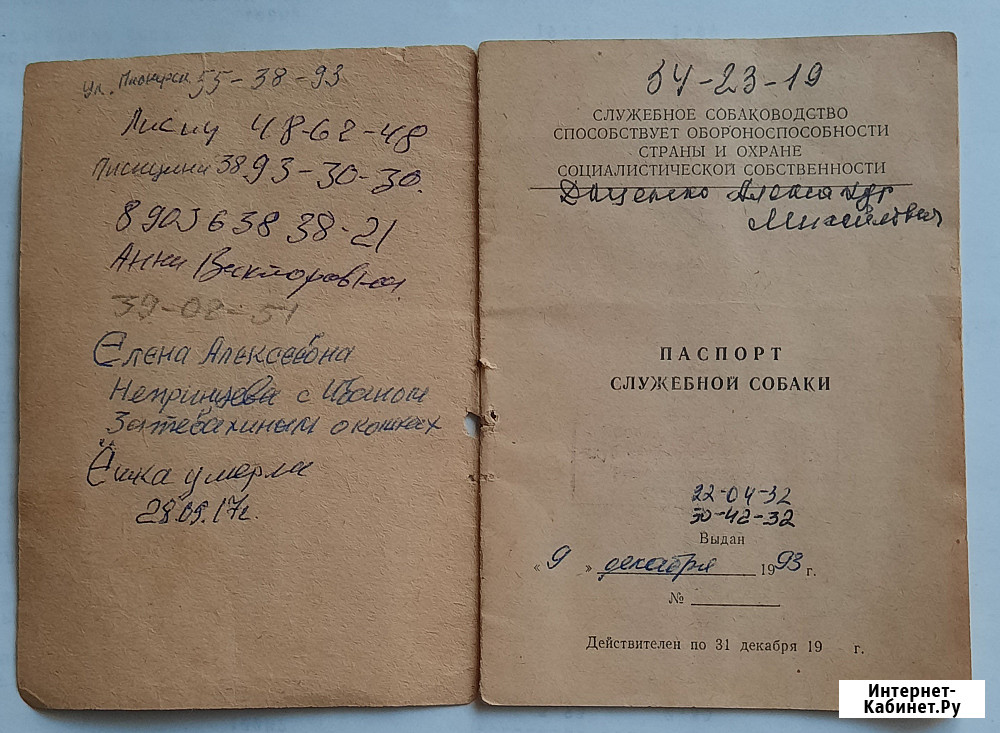 ул. 55-38-93
48-62-48
38 93-30-30.
8 903 6 38 38-21
Анна Викторовна
39-02-51
Елена Алексеевна
Непринцева с Иваном
Затевахиным о кошках
Ёшка умерла
28.09.17г.
34-23-19
СЛУЖЕБНОЕ СОБАКОВОДСТВО
СПОСОБСТВУЕТ ОБОРОНОСПОСОБНОСТИ
СТРАНЫ И ОХРАНЕ
СОЦИАЛИСТИЧЕСКОЙ СОБСТВЕННОСТИ
Доценко Александр
Михайлович
ПАСПОРТ
СЛУЖЕБНОЙ СОБАКИ
22-04-32
30-42-32
Выдан
« 9 » декабря 1993 г.
№
Действителен по 31 декабря 19 г.
Интернет-
Кабинет.Ру